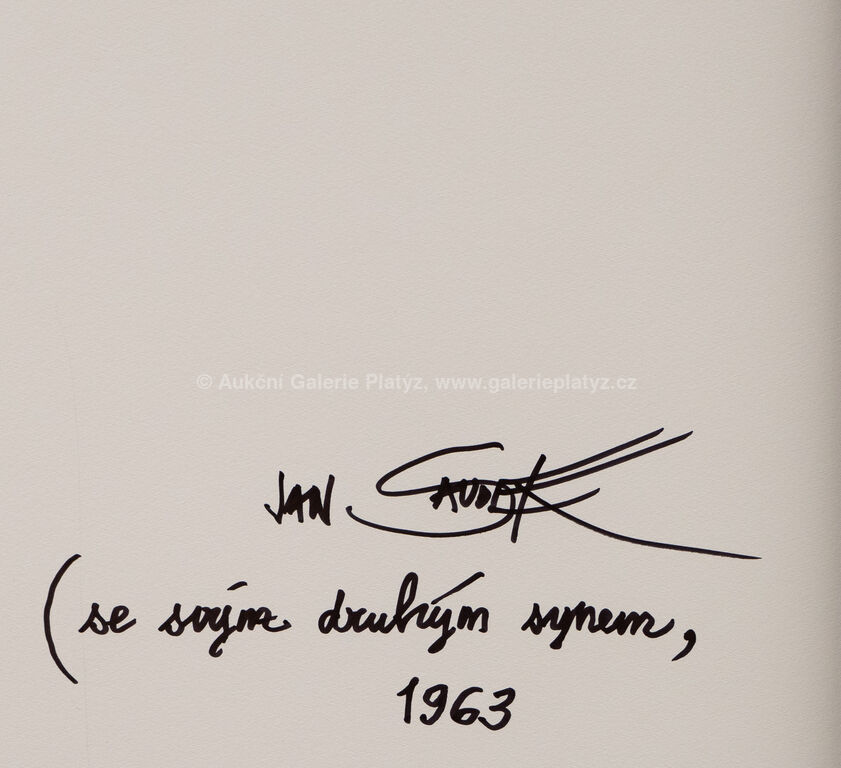 © Aukční Galerie Platýz, www.galerieplatyz.cz
JAN SAUDEK
(se svým druhým synem,
1963